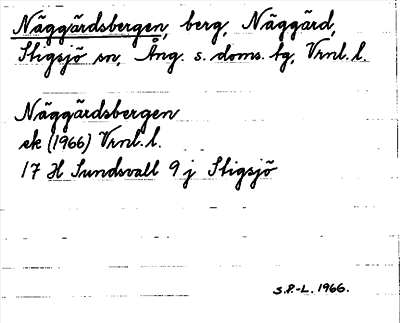 Näggärdsbergen, berg, Näggärd,
Stigsjö sn, Ång. s. doms. tg, Vrnl. l.
Näggärdsbergen
ek (1966) Vrnl. l.
17 H Sundsvall 9 j Stigsjö
S.P.-L. 1966.